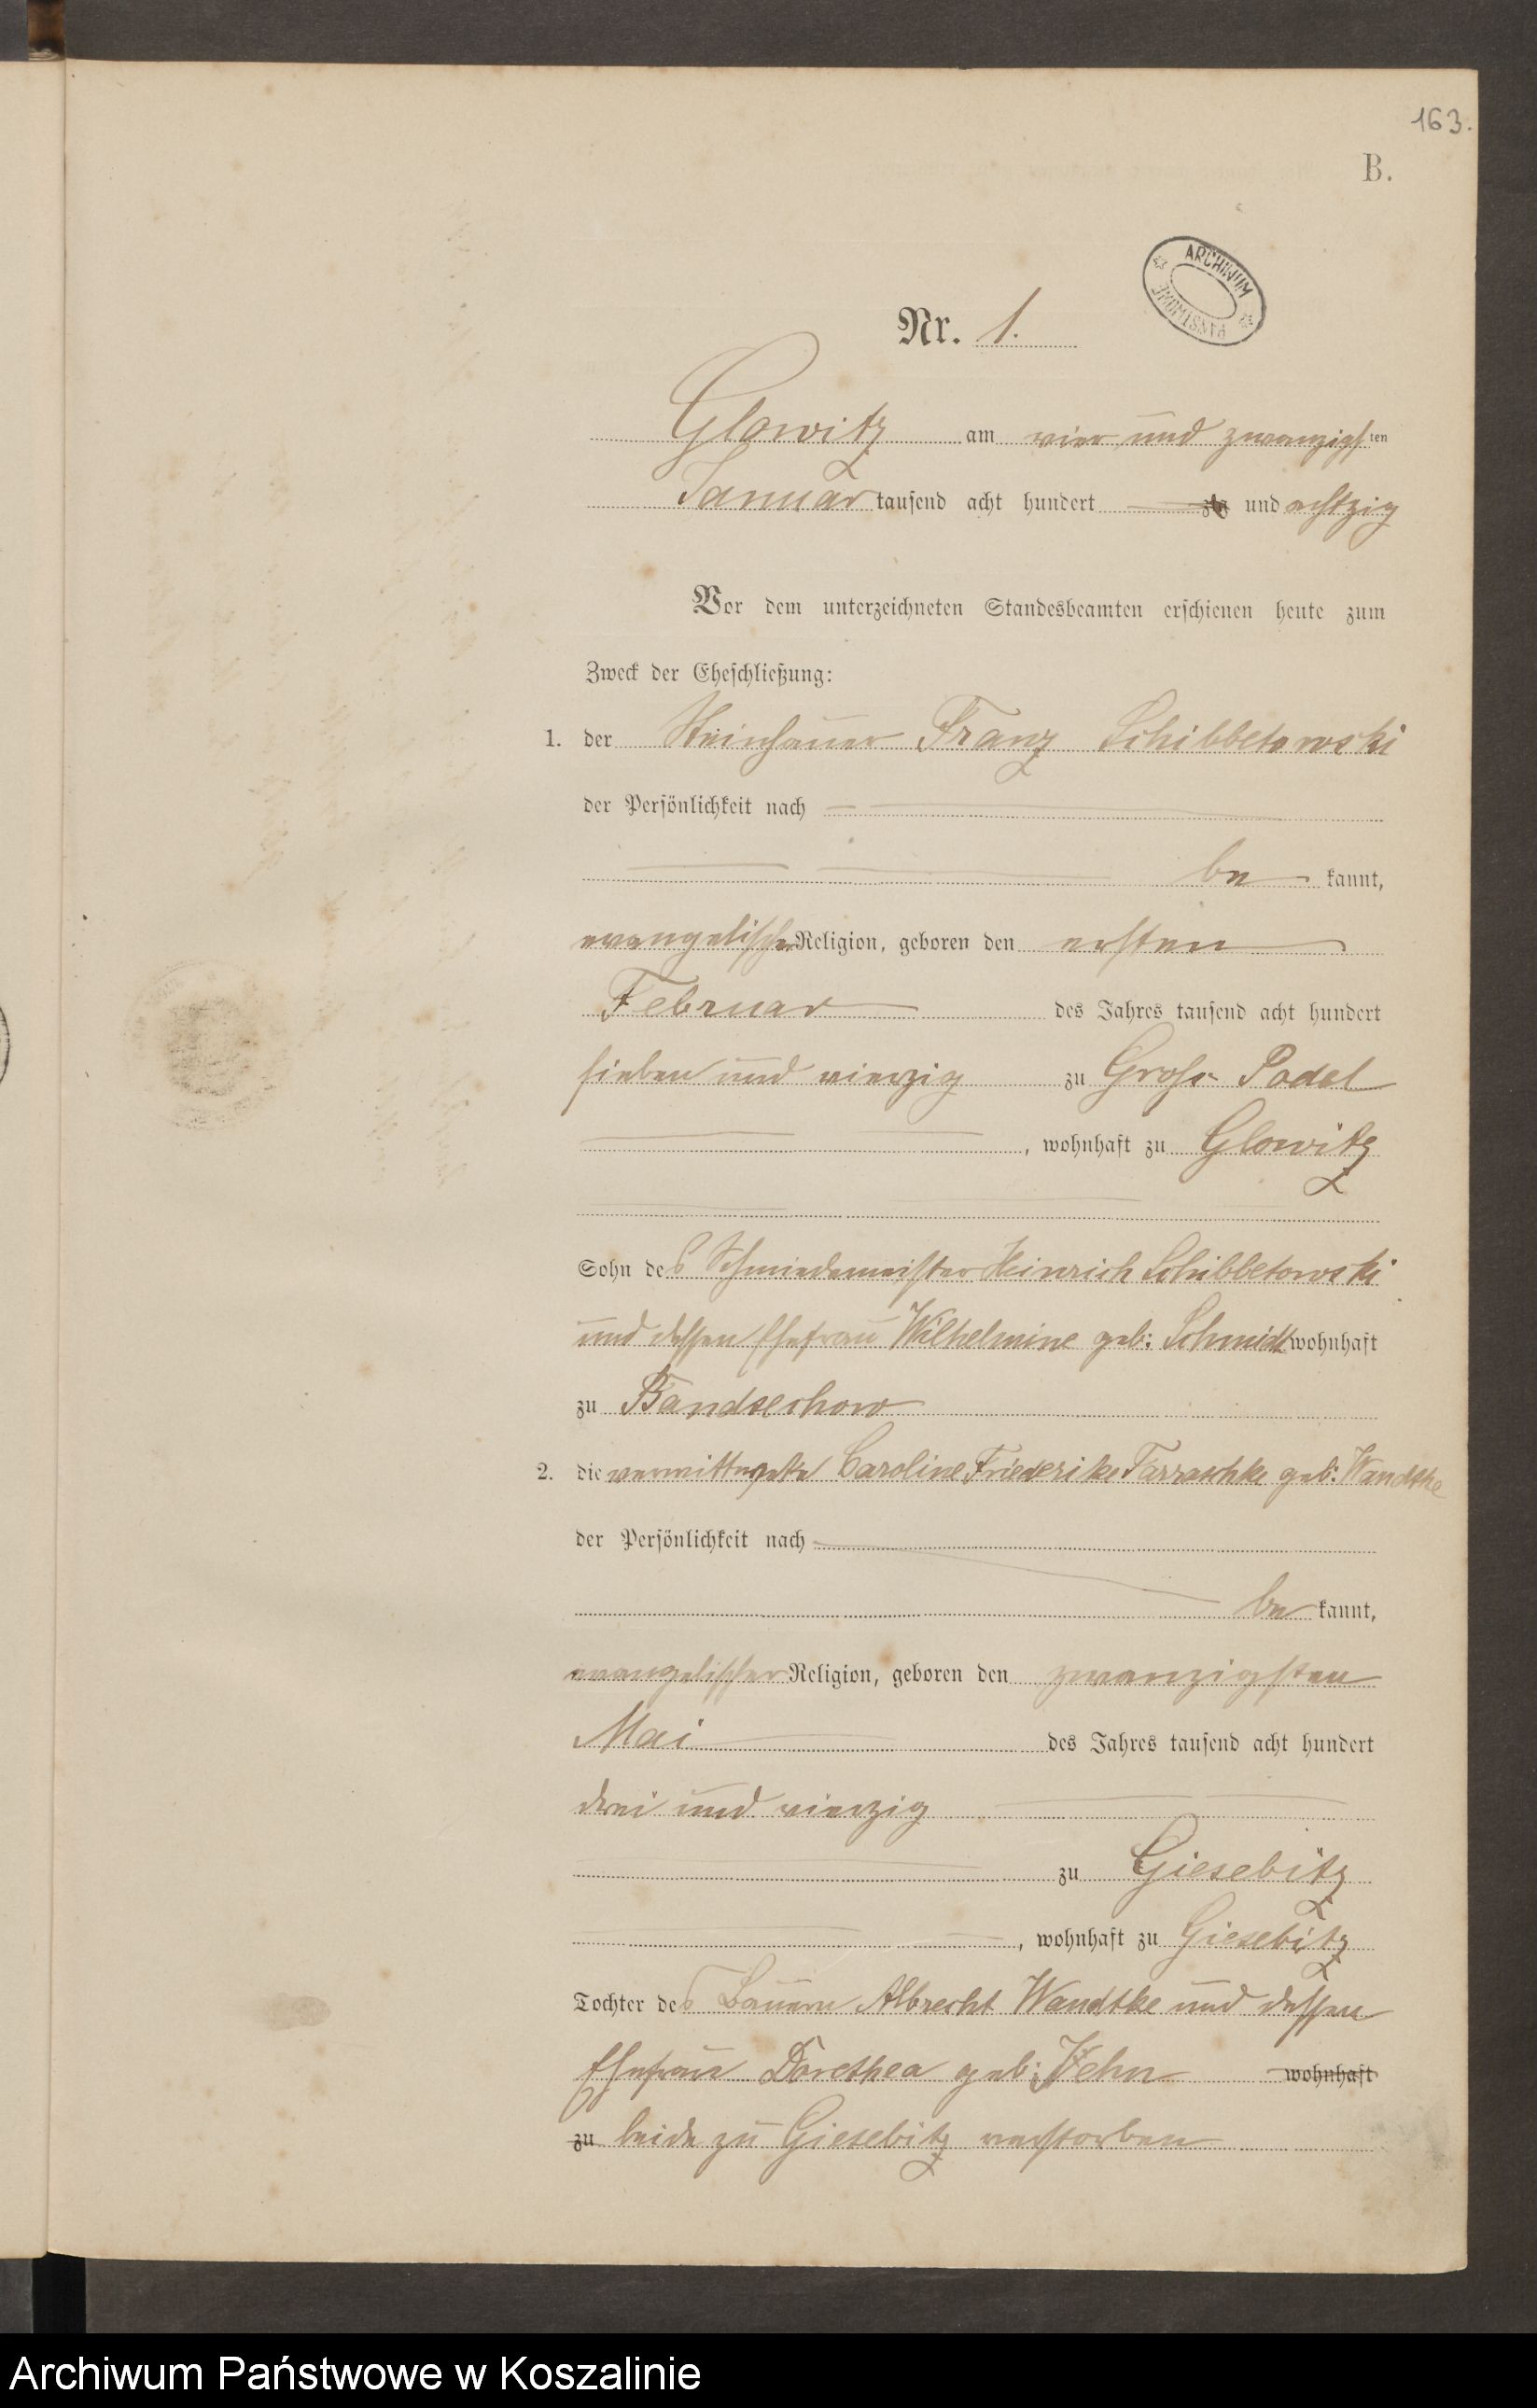 163.
B.
ARCHIWUM PAŃSTWOWE
Nr. 1.
Glowitz am vier und zwanzigsten
Januar tausend acht hundert und achtzig
Vor dem unterzeichneten Standesbeamten erschienen heute zum
Zweck der Eheschließung:
1. der Steinhauer Franz Schibbetowski
der Persönlichkeit nach
be kannt,
evangelischer Religion, geboren den ersten
Februar des Jahres tausend acht hundert
sieben und vierzig zu Gross Podel
, wohnhaft zu Glowitz
Sohn des Schmiedemeister Heinrich Schibbetowski
und dessen Ehefrau Wilhelmine geb: Schmidt wohnhaft
zu Bandsechow
2. die verwittwete Caroline Friederike Tarraschke geb: Wandtke
der Persönlichkeit nach
be kannt,
evangelischer Religion, geboren den zwanzigsten
Mai des Jahres tausend acht hundert
drei und vierzig
zu Giesebitz
, wohnhaft zu Giesebitz
Tochter des Bauern Albrecht Wandtke und dessen
Ehefrau Dorethea geb: wohnhaft
zu beide zu Giesebitz verstorben
Archiwum Państwowe w Koszalinie